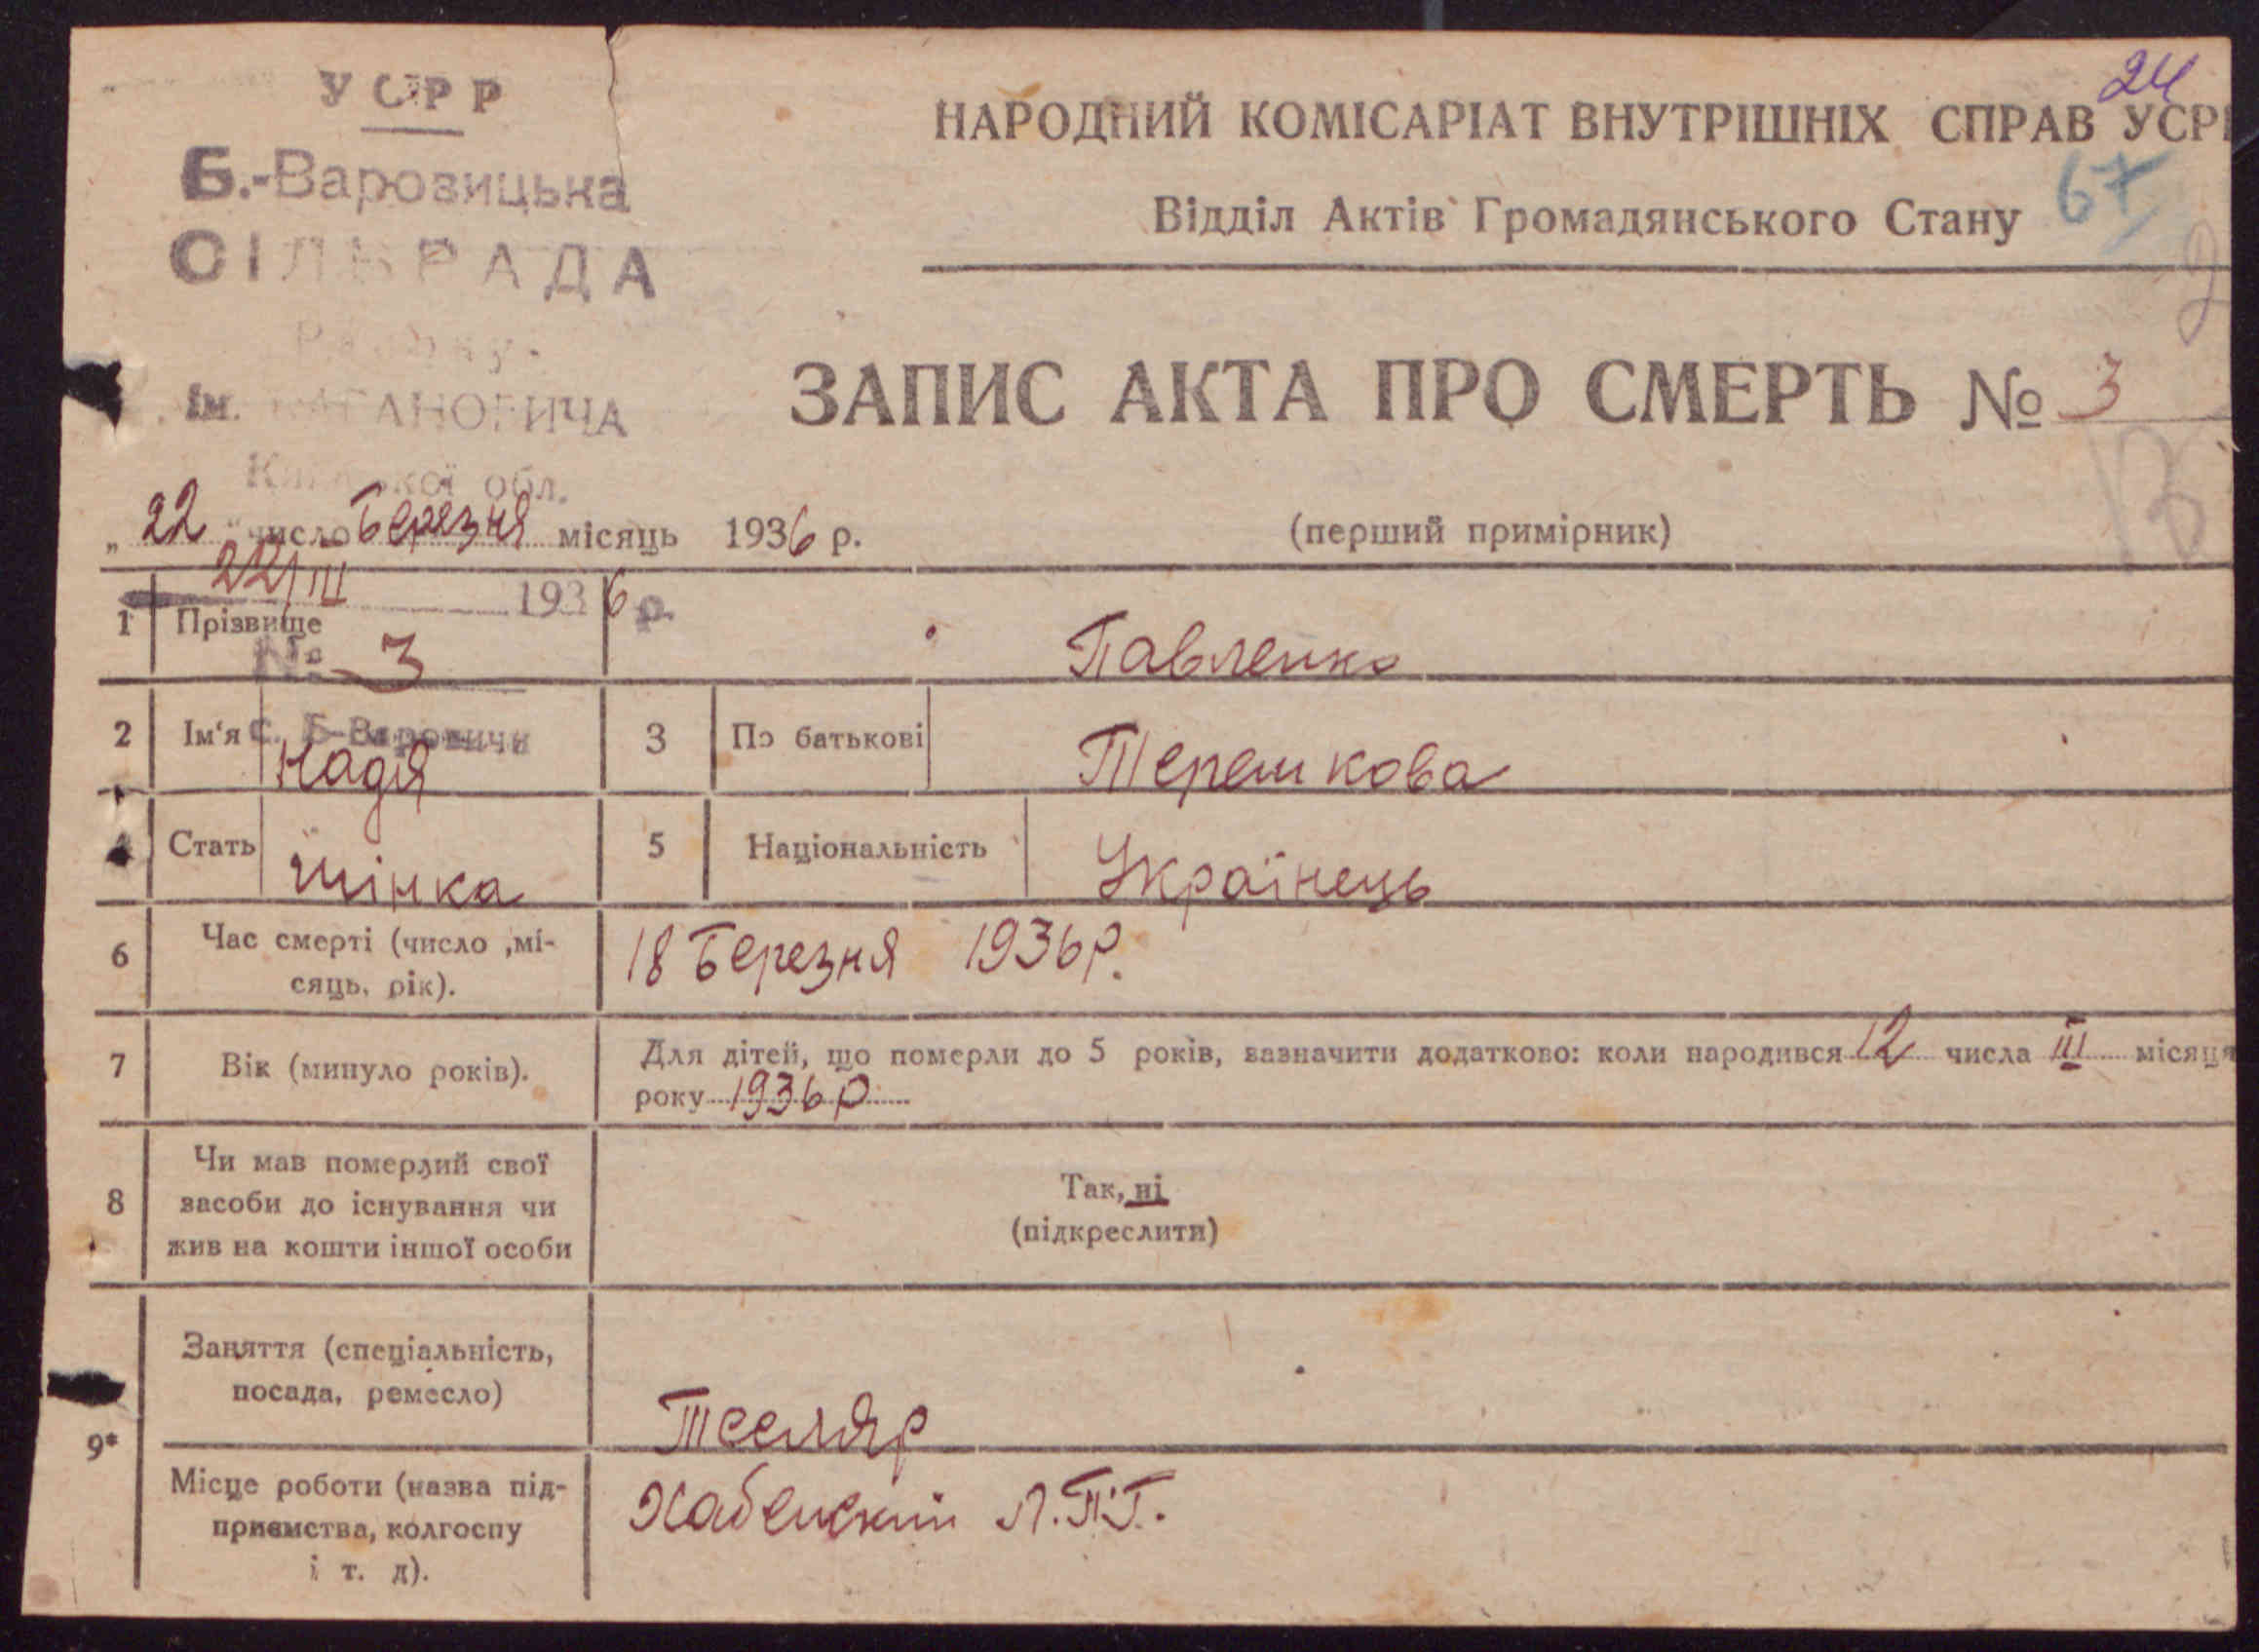 УСРР
Б.-Варовицька
СІЛЬРАДА
Району
ім. КАГАНОВИЧА
Київської обл.
24
НАРОДНИЙ КОМІСАРІАТ ВНУТРІШНІХ СПРАВ УСРР
67
Відділ Актів Громадянського Стану
2
ЗАПИС АКТА ПРО СМЕРТЬ № 3
„ 22 " число Березня місяць 1936 р.
(перший примірник)
22/III 1936 р.
№ 3
с. Б-Варовичи
1 Прізвище Павленко
2 Ім'я Надія 3 По батькові Терешкова
4 Стать жінка 5 Національність Українець
6 Час смерті (число ,мі-
сяць, рік). 18 Березня 1936 р.
7 Вік (минуло років). Для дітей, що померли до 5 років, зазначити додатково: коли народився 12 числа III місяця
року 1936 р
8 Чи мав померлий свої
засоби до існування чи
жив на кошти іншої особи
Так, ні
(підкреслити)
9* Заняття (спеціальність,
посада, ремесло) Тесляр
Місце роботи (назва під-
приємства, колгоспу
і т. д).
Хабенский Л.П.Г.